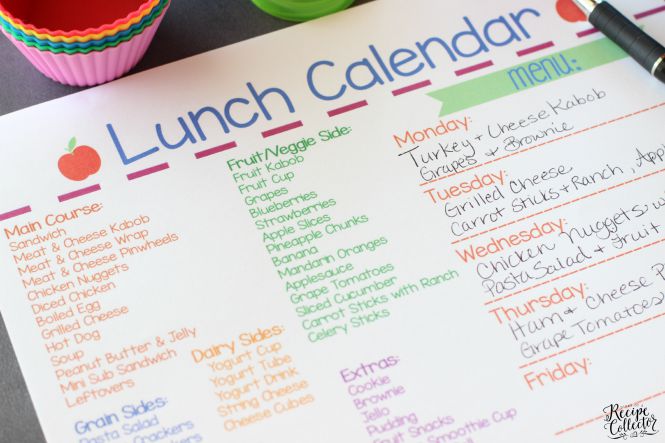 Lunch Calendar
Main Course:
Sandwich
Meat & Cheese Kabob
Meat & Cheese Wrap
Meat & Cheese Pinwheels
Chicken Nuggets
Diced Chicken
Boiled Egg
Grilled Cheese
Hot Dog
Soup
Peanut Butter & Jelly
Mini Sub Sandwich
Leftovers
Grain Sides:
Pasta Salad
Crackers
Fruit/Veggie Side:
Fruit Kabob
Fruit Cup
Grapes
Blueberries
Strawberries
Apple Slices
Pineapple Chunks
Banana
Mandarin Oranges
Applesauce
Grape Tomatoes
Sliced Cucumber
Carrot Sticks with Ranch
Celery Sticks
Dairy Sides:
Yogurt Cup
Yogurt Tube
Yogurt Drink
String Cheese
Cheese Cubes
Extras:
Cookie
Brownie
Jello
Pudding
Fruit Snacks
Smoothie Cup
menu:
Monday:
Turkey + Cheese Kabob
Grapes + Brownie
Tuesday:
Grilled Cheese
Carrot Sticks + Ranch,
Wednesday:
Chicken Nuggets
Pasta Salad + Fruit
Thursday:
Ham + Cheese
Grape Tomatoes
Friday:
Recipe
Collector